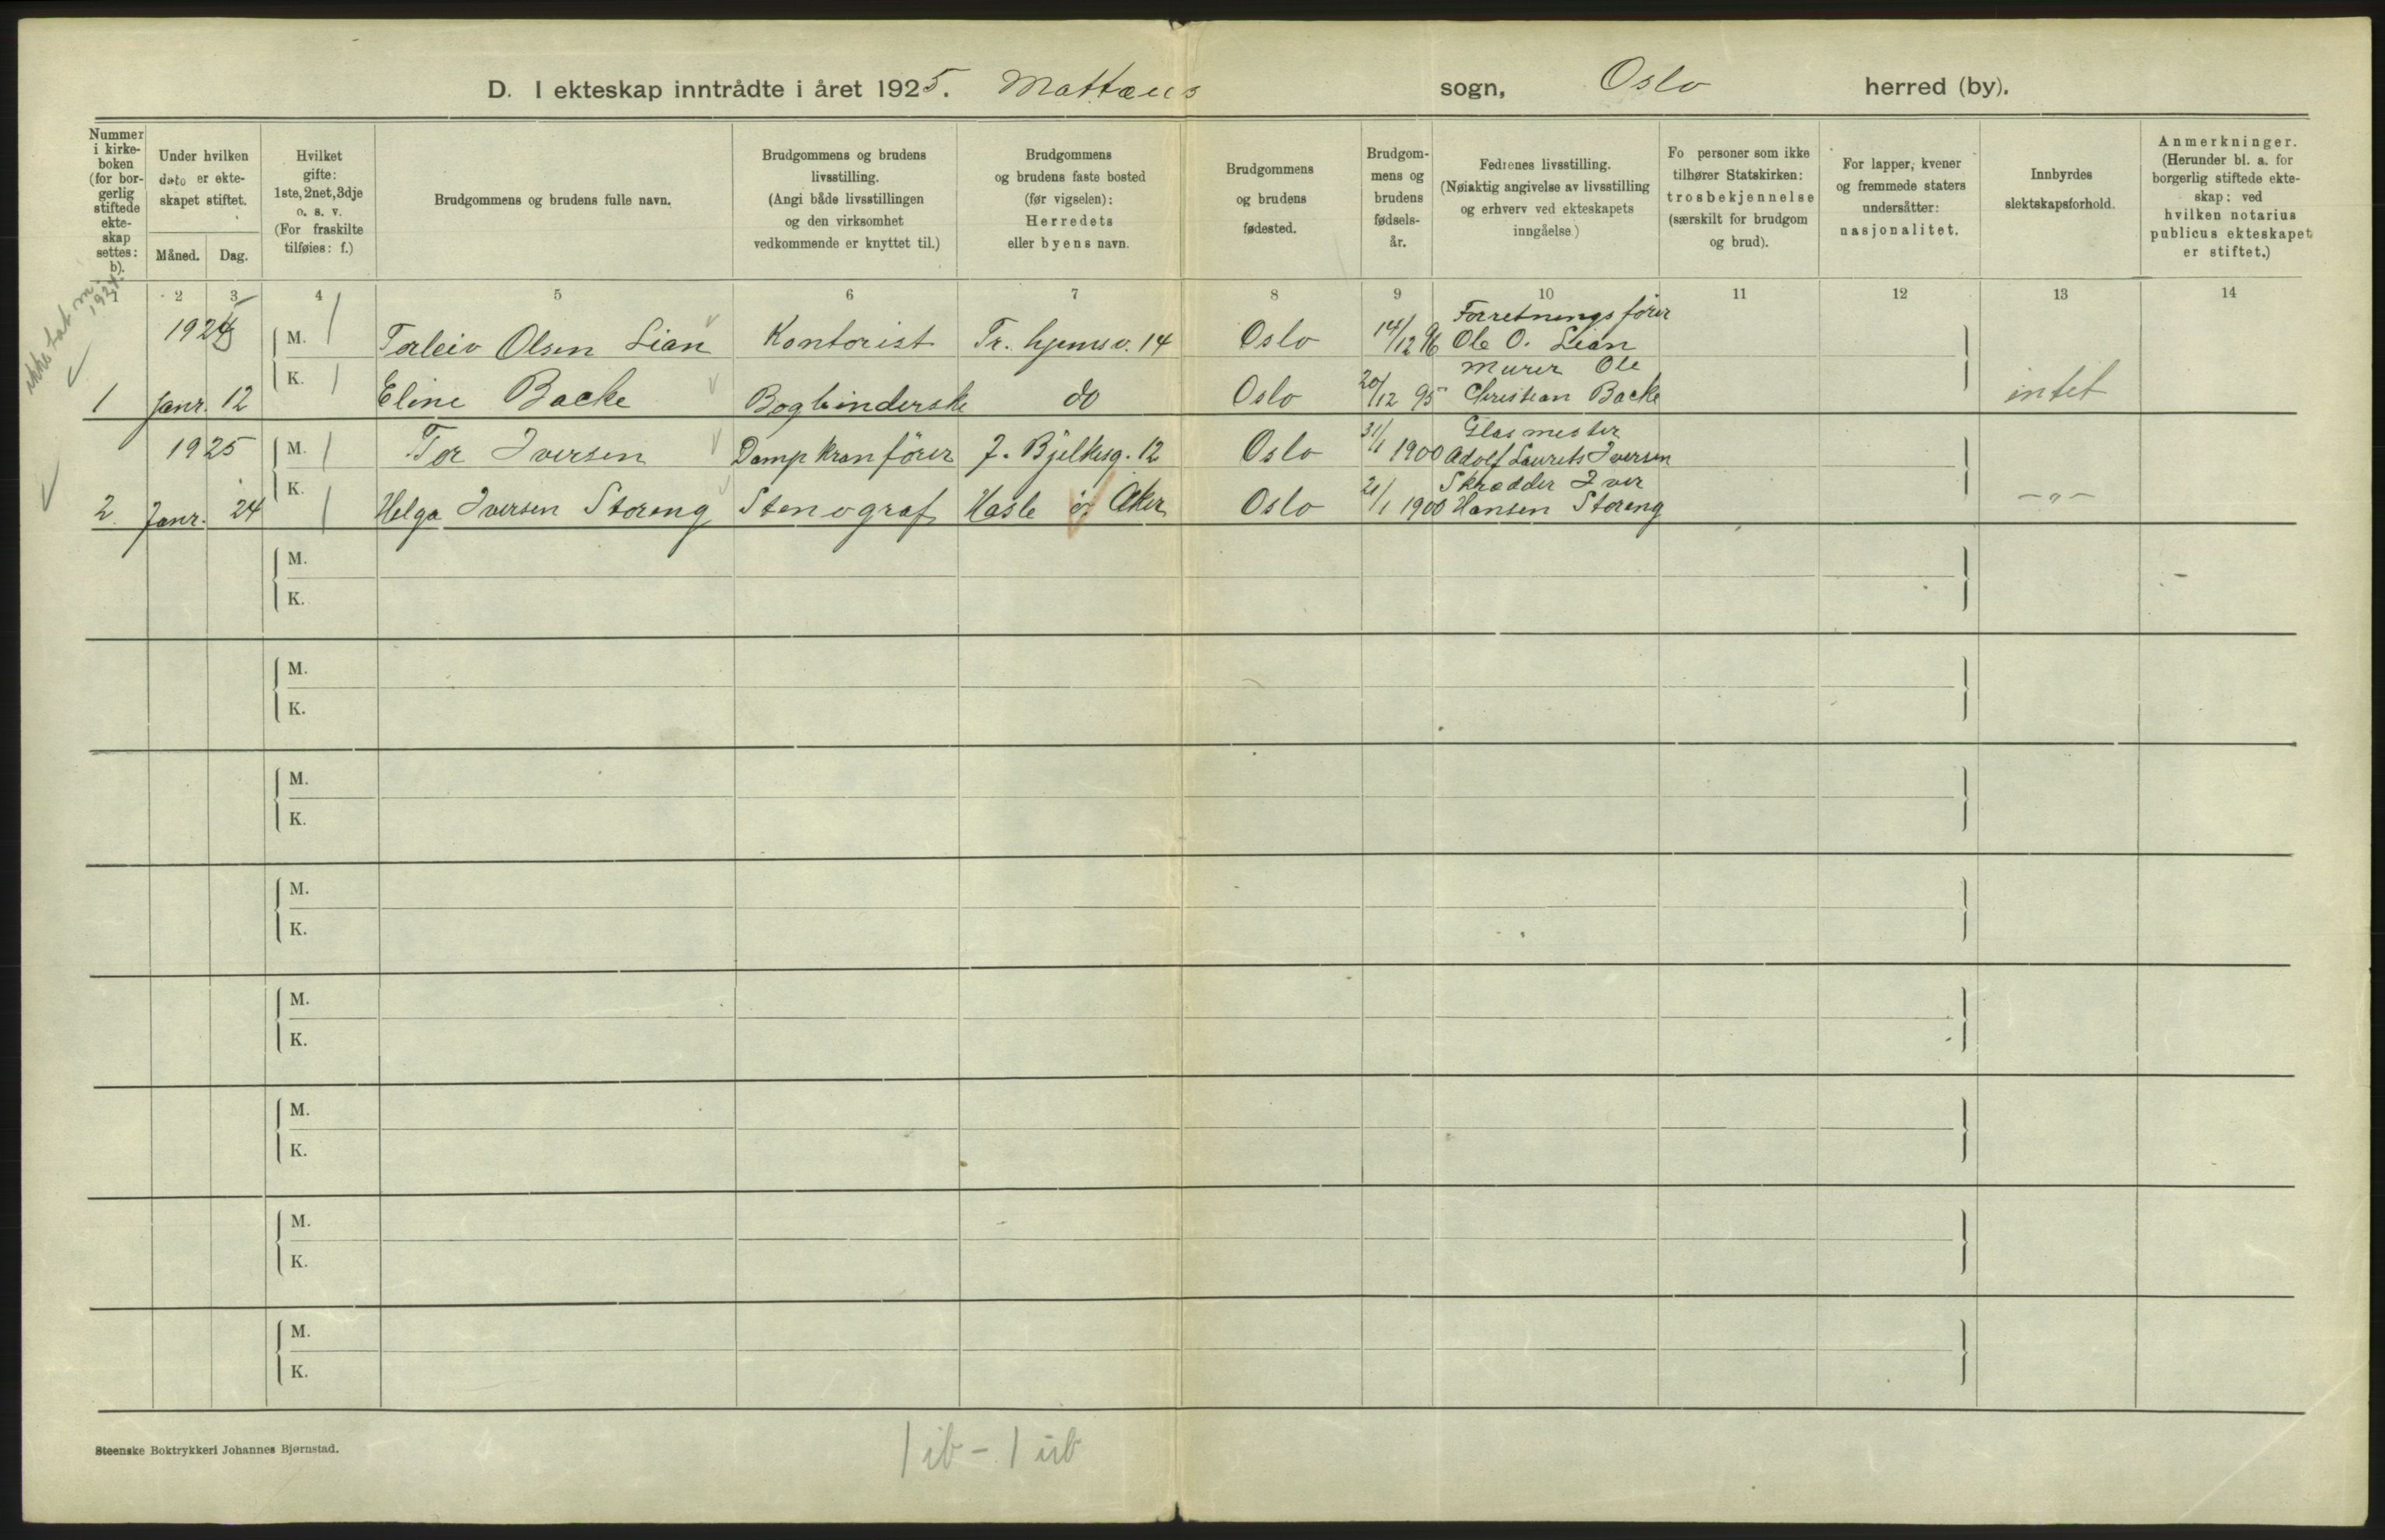 D. I ekteskap inntrådte i året 1925. Mattæus sogn, Oslo herred (by).
Nummer i kirke-boken (for bor-gerlig stiftede ekte-skap settes: b).
Under hvilken dato er ekte-skapet stiftet.
Måned. Dag.
Hvilket gifte: 1ste, 2net, 3dje o. s. v. (For fraskilte tilføies: f.)
Brudgommens og brudens fulle navn.
Brudgommens og brudens livsstilling. (Angi både livsstillingen og den virksomhet vedkommende er knyttet til.)
Brudgommens og brudens faste bosted (før vigselen): Herredets eller byens navn.
Brudgommens og brudens fødested.
Brudgom-mens og brudens fødsels-år.
Fedrenes livsstilling. (Nøiaktig angivelse av livsstilling og erhverv ved ekteskapets inngåelse)
Fo personer som ikke tilhører Statskirken: trosbekjennelse (særskilt for brudgom og brud).
For lapper, kvener og fremmede staters undersåtter: nasjonalitet.
Innbyrdes slektskapsforhold.
Anmerkninger. (Herunder bl. a. for borgerlig stiftede ekte-skap: ved hvilken notarius publicus ekteskapet er stiftet.)
1 2 3 4 5 6 7 8 9 10 11 12 13 14
ikke tat m. 1924.
Forretningsfører
M. / Torleiv Olsen Lian Kontorist Tr. hjemsv. 14 Oslo 14/12 96 Ole O. Lian
Murer Ole
1 Janr. 12 K. / Eline Backe Bogbinderske do Oslo 20/12 95 Christian Backe intet
Glasmester
1925 M. / Tor Iversen Dampkranfører J. Bjelkesg. 12 Oslo 31/1 1900 Adolf Laurits Iversen
Skrædder Iver
2. Janr. 24 K. / Helga Iversen Storeng Stenograf Hasle i Aker Oslo 21/1 1900 Hansen Storeng -"-
M.
K.
M.
K.
M.
K.
M.
K.
M.
K.
M.
K.
M.
K.
M.
K.
Steenske Boktrykkeri Johannes Bjørnstad.
1 ib - 1 ub